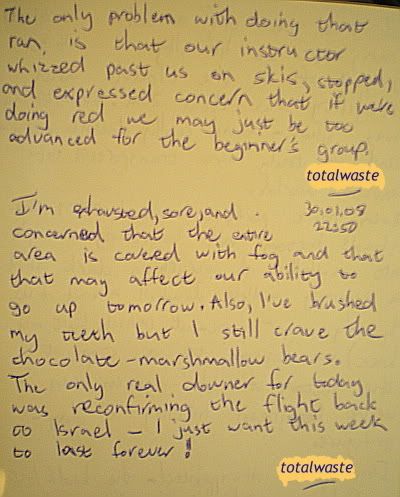 The only problem with doing that
run, is that our instructor
whizzed past us on skis, stopped,
and expressed concern that if we're
doing red we may just be too
advanced for the beginner's group.
totalwaste
I'm exhausted, sore, and
30.01.08
22:50
concerned that the entire
area is covered with fog and that
that may affect our ability to
go up tomorrow. Also, I've brushed
my teeth but I still crave the
chocolate-marshmallow bears.
The only real downer for today
was reconfirming the flight back
to Israel - I just want this week
to last forever!
totalwaste